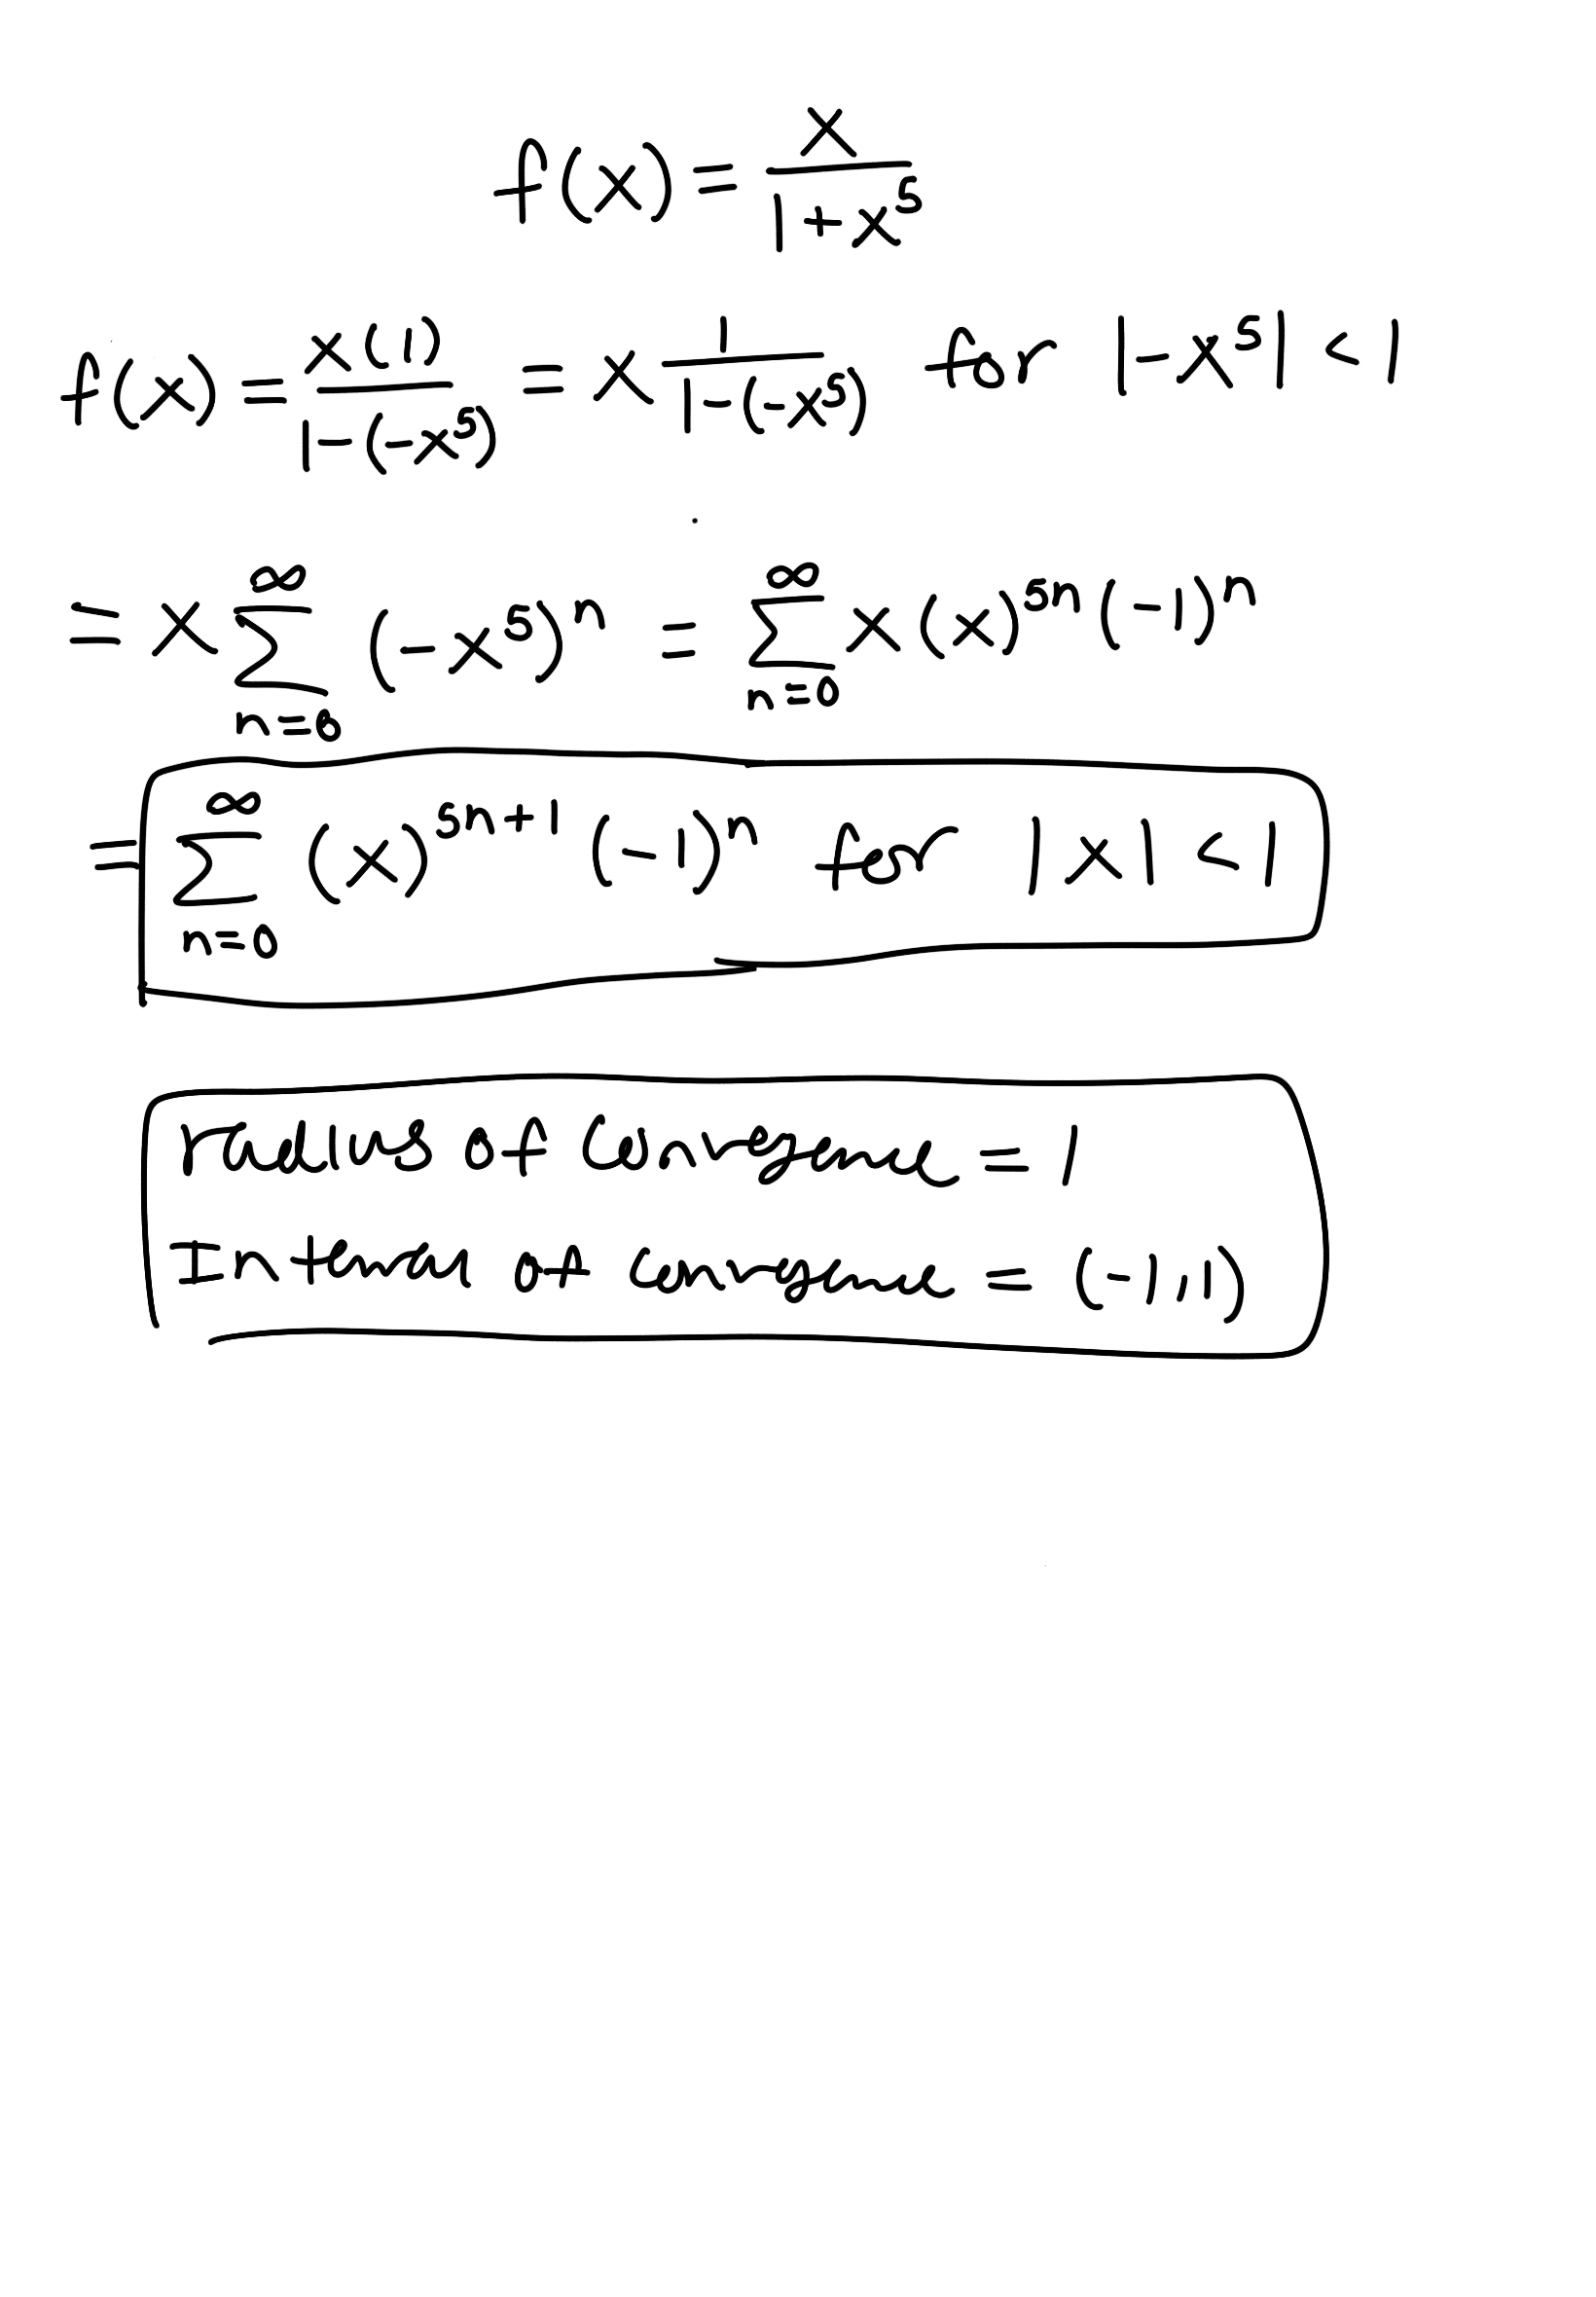 f(x) = x/(1+x^5)
f(x) = x(1)/(1-(-x^5)) = x 1/(1-(-x^5)) for |-x^5| < 1
= x ∑_{n=0}^{∞} (-x^5)^n = ∑_{n=0}^{∞} x(x)^{5n}(-1)^n
= ∑_{n=0}^{∞} (x)^{5n+1} (-1)^n for |x| < 1
radius of convergence = 1
Interval of convergence = (-1,1)